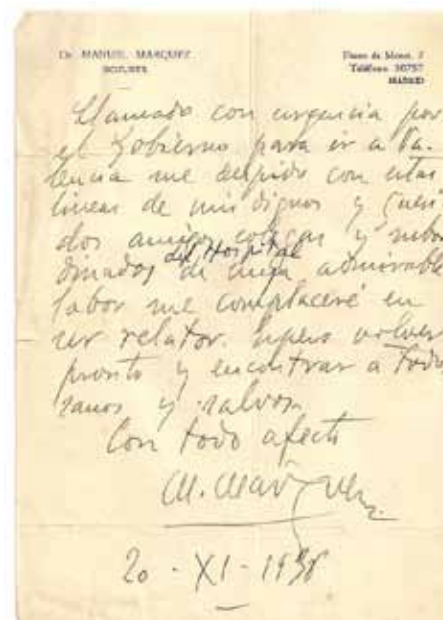 Dr. MANUEL MARQUEZ
Teléfono 50757
MADRID
Llamado con urgencia por
el Gobierno para ir a Va-
lencia me despido con estas
líneas de mis dignos y queri
dos amigos colegas y subor
dinados del Hospital de cuya admirable
labor me complaceré en
ser relator. Espero volver
pronto y encontrar a todos
sanos y salvos.
Con todo afecto
M. Márquez
20-XI-1936